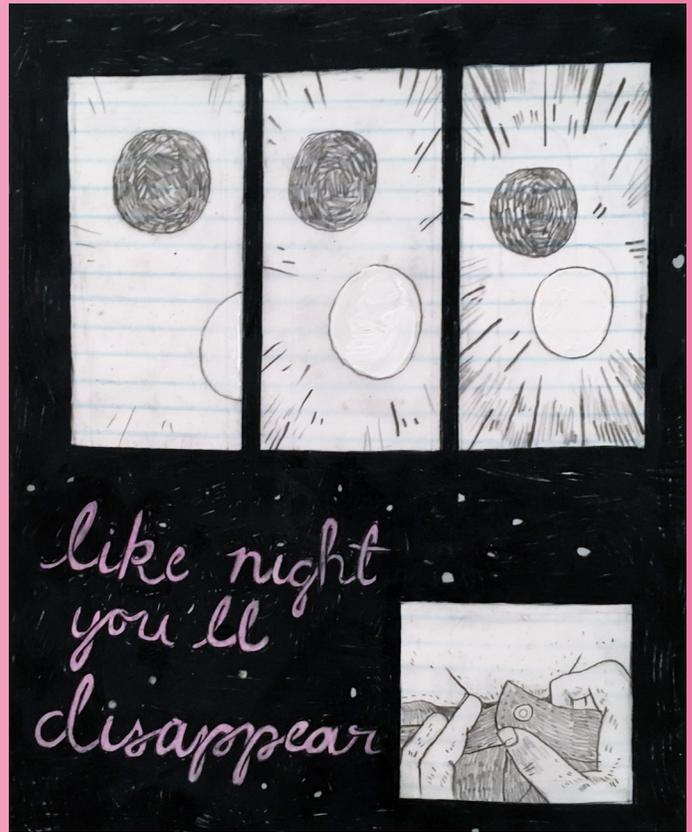 like night
you'll
disappear